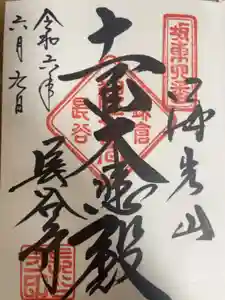 坂東四番
海光山
十一面大悲殿
鎌倉
長谷
長谷寺
令和六年
六月九日